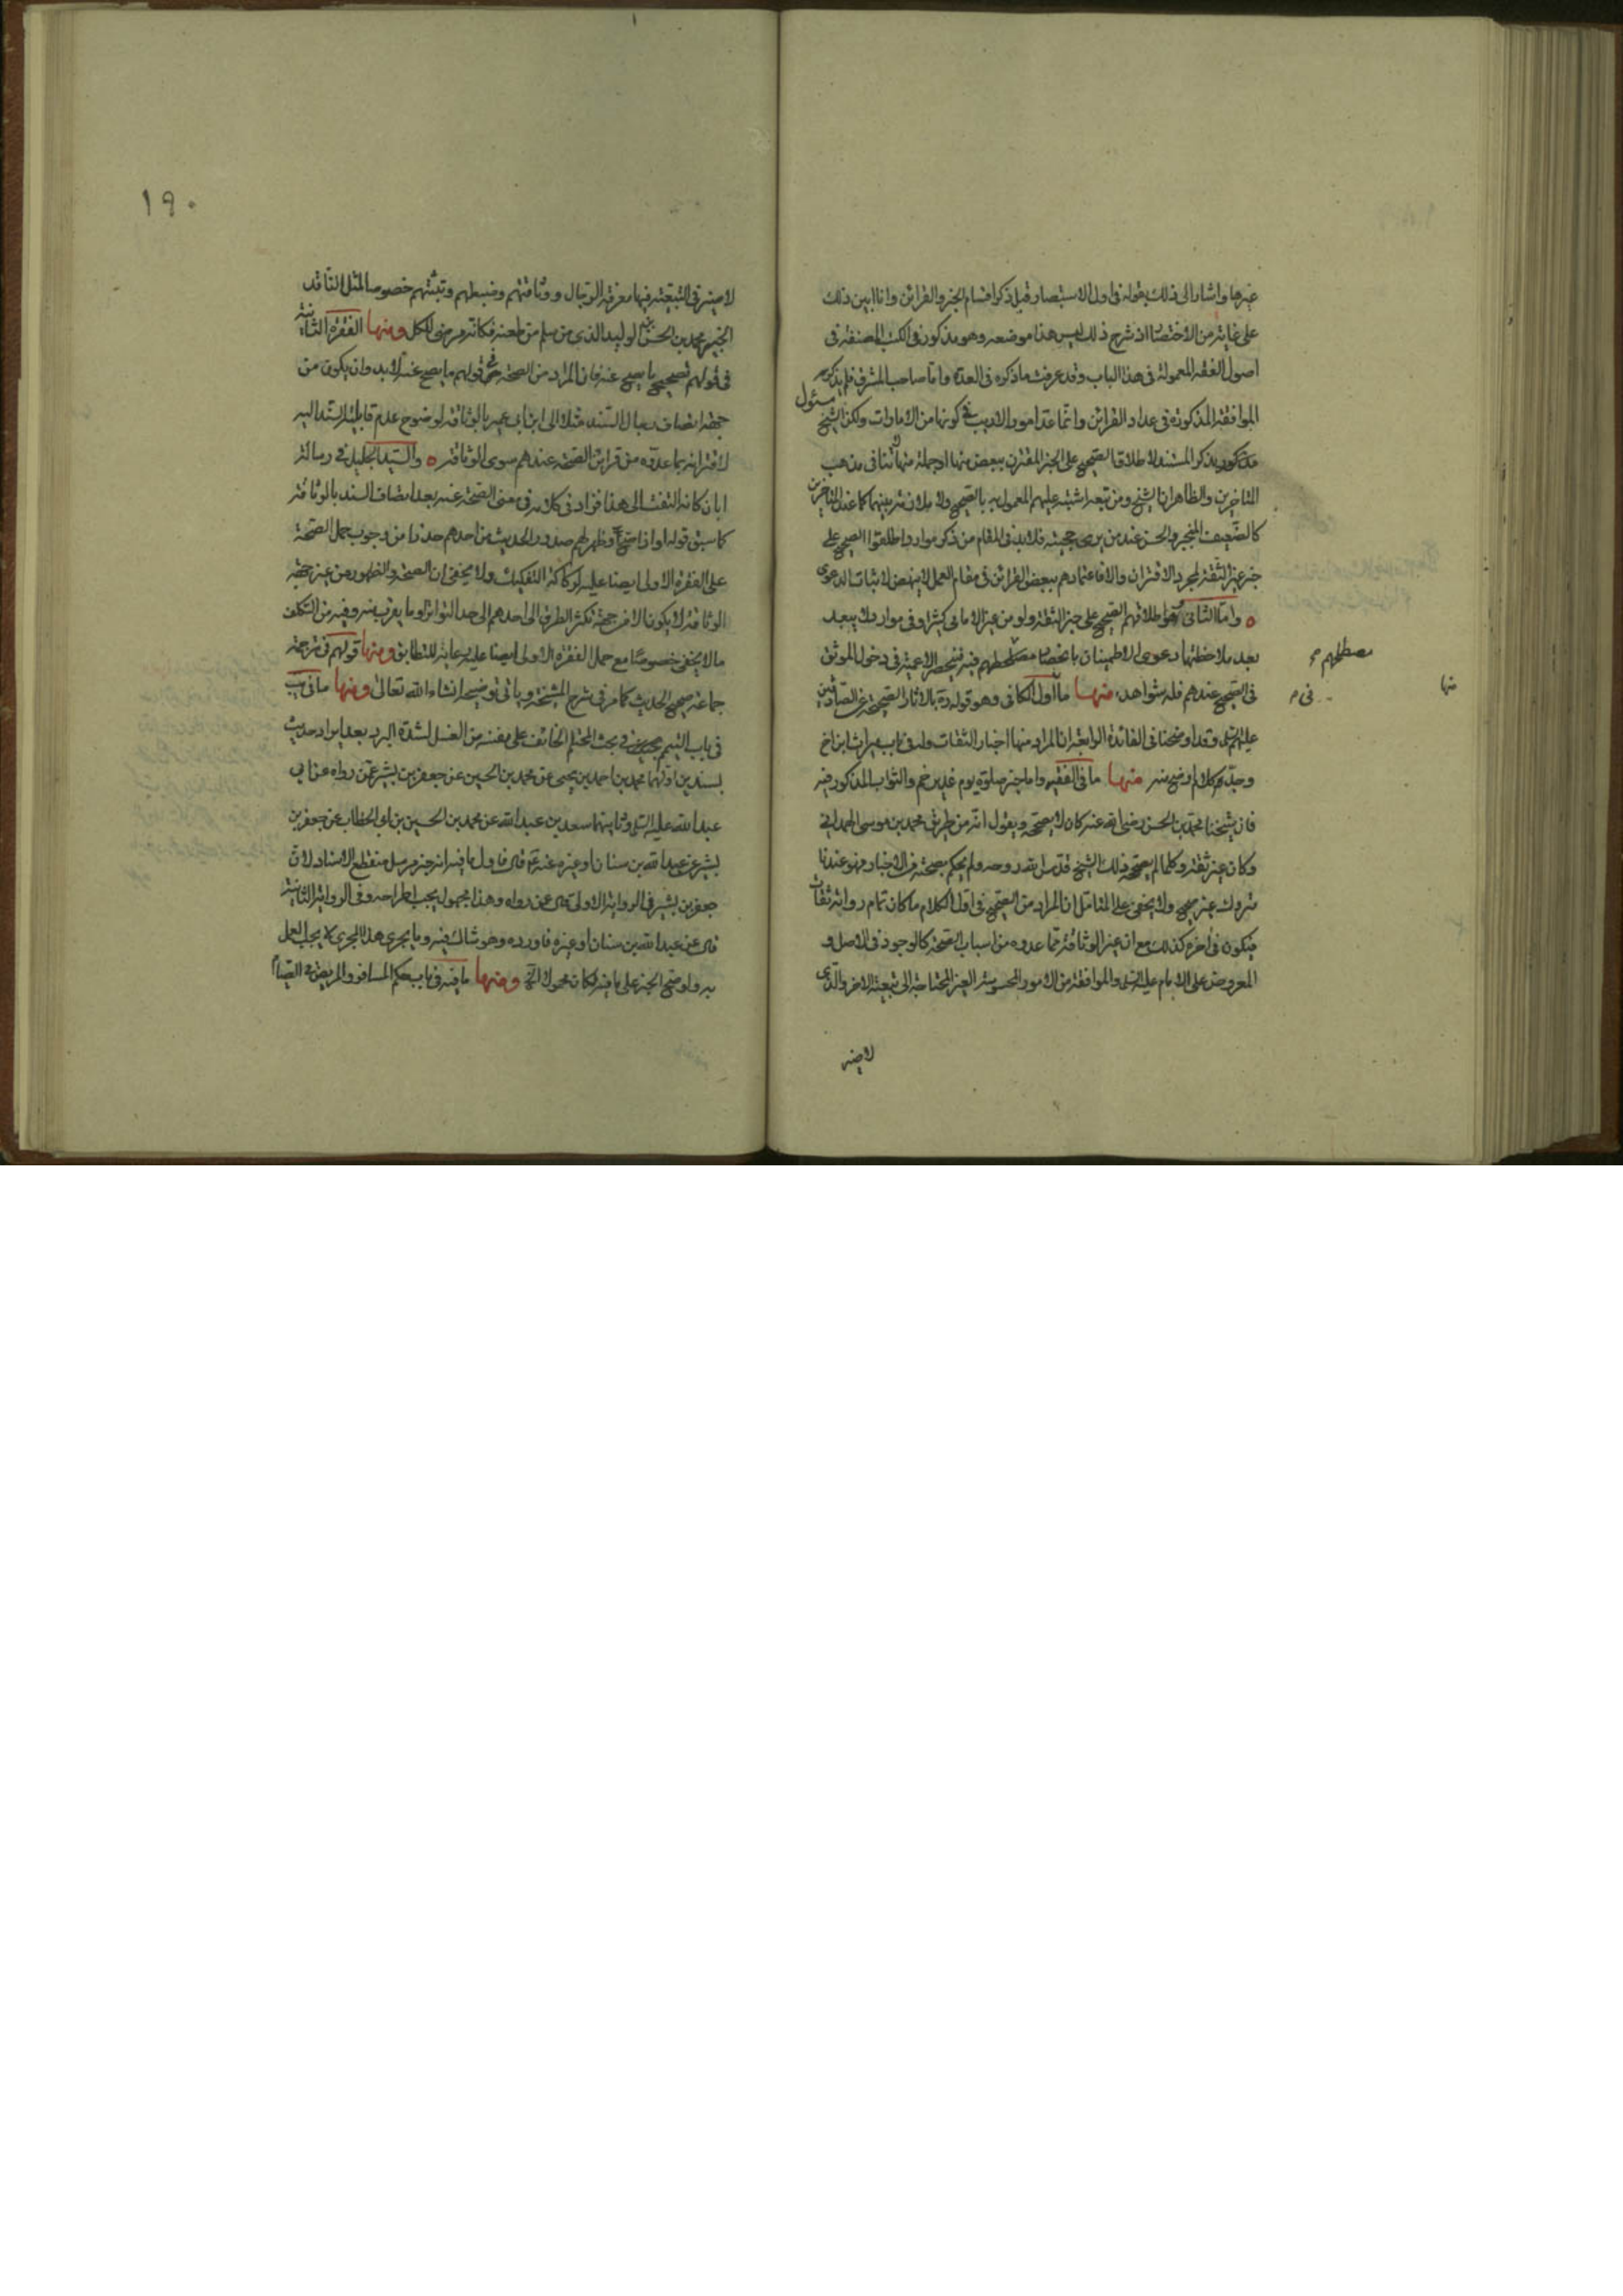 غيرها واشار الى ذلك بقوله فى اول الاستبصار قبل ذكر اقسام الخبر والقرائن وانا ابين ذلك
على غاية من الاختصار اذ شرح ذلك ليس هذا موضعه وهو مذكور فى الكتب المصنفة فى
اصول الفقه المعمولة فى هذا الباب وقد عرفت ما ذكره فى العدة واما صاحب المشرق فلم يذكر
الموافقة المذكورة فى عداد القرائن وانما عد امورا لا ريب فى كونها من الامارات ولكن الشيخ
مسئول
بذكر المستند لاطلاق الصحيح على الخبر المقترن ببعض منها او جملة منها
المتاخرين والظاهر ان الشيخ ومن تبعه اشتبه عليهم المعمول به بالصحيح ولا ملازمة بينهما كما عند المتاخرين
كالضعيف المنجبر والحسن عند من يرى حجيته فلابد فى المقام من ذكر موارد اطلقوا الصحيح على
خبر غير الثقة لمجرد الاقتران والا فاعتمادهم ببعض القرائن فى مقام العمل لا ينهض لاثبات الدعوى
واما الثانى فهو اطلاقهم الصحيح على خبر الثقة ولو من غير الامامى كثيرا وفى موارد لا يبعد
بعد ملاحظتها دعوى الاطمينان بانحصار مصطلحهم فيه فينحصر الاعمية فى دخول الموثق
مصطلحهم
فى الصحيح عندهم فله شواهد منها ما فى اول الكافى وهو قوله ره بالاثار الصحيحة عن الصادقين
منها
عليهم السلام وقد اوضحنا فى الفائدة الرابعة ان المراد منها اخبار الثقات وله فى باب ميراث ابن اخ
وجد كلام اوضح منه منها ما فى الفقيه واما خبر صلوة يوم غدير خم والثواب المذكور فيه
فان شيخنا محمد بن الحسن رضى الله عنه كان لا يصححه ويقول انه من طريق محمد بن موسى الهمدانى
وكان غير ثقة وكلما لم يصححه ذلك الشيخ قدس الله روحه ولم يحكم بصحته من الاخبار فهو عندنا
متروك غير صحيح ولا يخفى على المتامل ان المراد من الصحيح فى اول الكلام ما كان تمام رواته ثقات
فيكون فى اخره كذلك مع ان غير الوثاقة مما عدوه من اسباب الصحة كالوجود فى الاصل و
المعروض على الامام عليه السلام والموافقة من الامور المحسوسة الغير المحتاجة الى تبعية الاخر والذى
لا ضير
١٩٠
لا ضير فى التبعية فيها معرفة الرجال ووثاقتهم وضبطهم وتثبتهم خصوصا لمثل الناقد
الخبير محمد بن الحسن بن الوليد الذى من سلم من طعنه فكانه مرضى الكل ومنها الفقرة الثانية
فى قولهم تصحيح ما يصح عنه فان المراد من الصحة فى قولهم ما يصح عنه لابد وان يكون من
جهة اتصاف رجال السند مثلا الى ابن ابى عمير بالوثاقة لوضوح عدم قابلية السند اليه
لاقترانه بما عدوه من قرائن الصحة عندهم سوى الوثاقة والسيد الجليل فى رسالة
ابان كانه التفت الى هذا فزاد فى كلامه فى معنى الصحة عنه بعد اتصاف السند بالوثاقة
كما سبق قوله او اذا صح وظهر لهم صدور الحديث من احدهم حذرا من وجوب حمل الصحة
على الفقرة الاولى ايضا عليه لركاكة التفكيك ولا يخفى ان الصحة والظهور من غير جهة
الوثاقة لا يكون الا من جهة تكثر الطرق الى احدهم الى حد التواتر او ما يقرب منه وفيه من التكلف
ما لا يخفى خصوصا مع حمل الفقرة الاولى ايضا عليه رعاية للتطابق ومنها قولهم فى ترجمة
جماعة صحيح الحديث كما مر فى شرح المشيخة وياتى توضيحه انشاء الله تعالى ومنها ما فى يب
فى باب التيمم فى بحث المحتلم الخائف على نفسه من الغسل لشدة البرد بعد ايراد حديث
بسندين اولهما محمد بن احمد بن يحيى عن محمد بن الحسين عن جعفر بن بشير عمن رواه عن ابى
عبد الله عليه السلام وثانيهما سعد بن عبد الله عن محمد بن الحسين بن ابى الخطاب عن جعفر بن
بشير عن عبد الله بن سنان او غيره عنه ع قال فاول ما فيه انه خبر مرسل منقطع الاسناد لان
جعفر بن بشير فى الرواية الاولى قال عمن رواه وهذا مجهول يجب اطراحه وفى الرواية الثانية
قال عن عبد الله بن سنان او غيره فاورده وهو شاك فيه وما يجرى هذا المجرى لا يجب العمل
به ولو صح الخبر على ما فيه لكان محمولا الخ ومنها ما فيه فى باب حكم المسافر والمريض فى الصيام